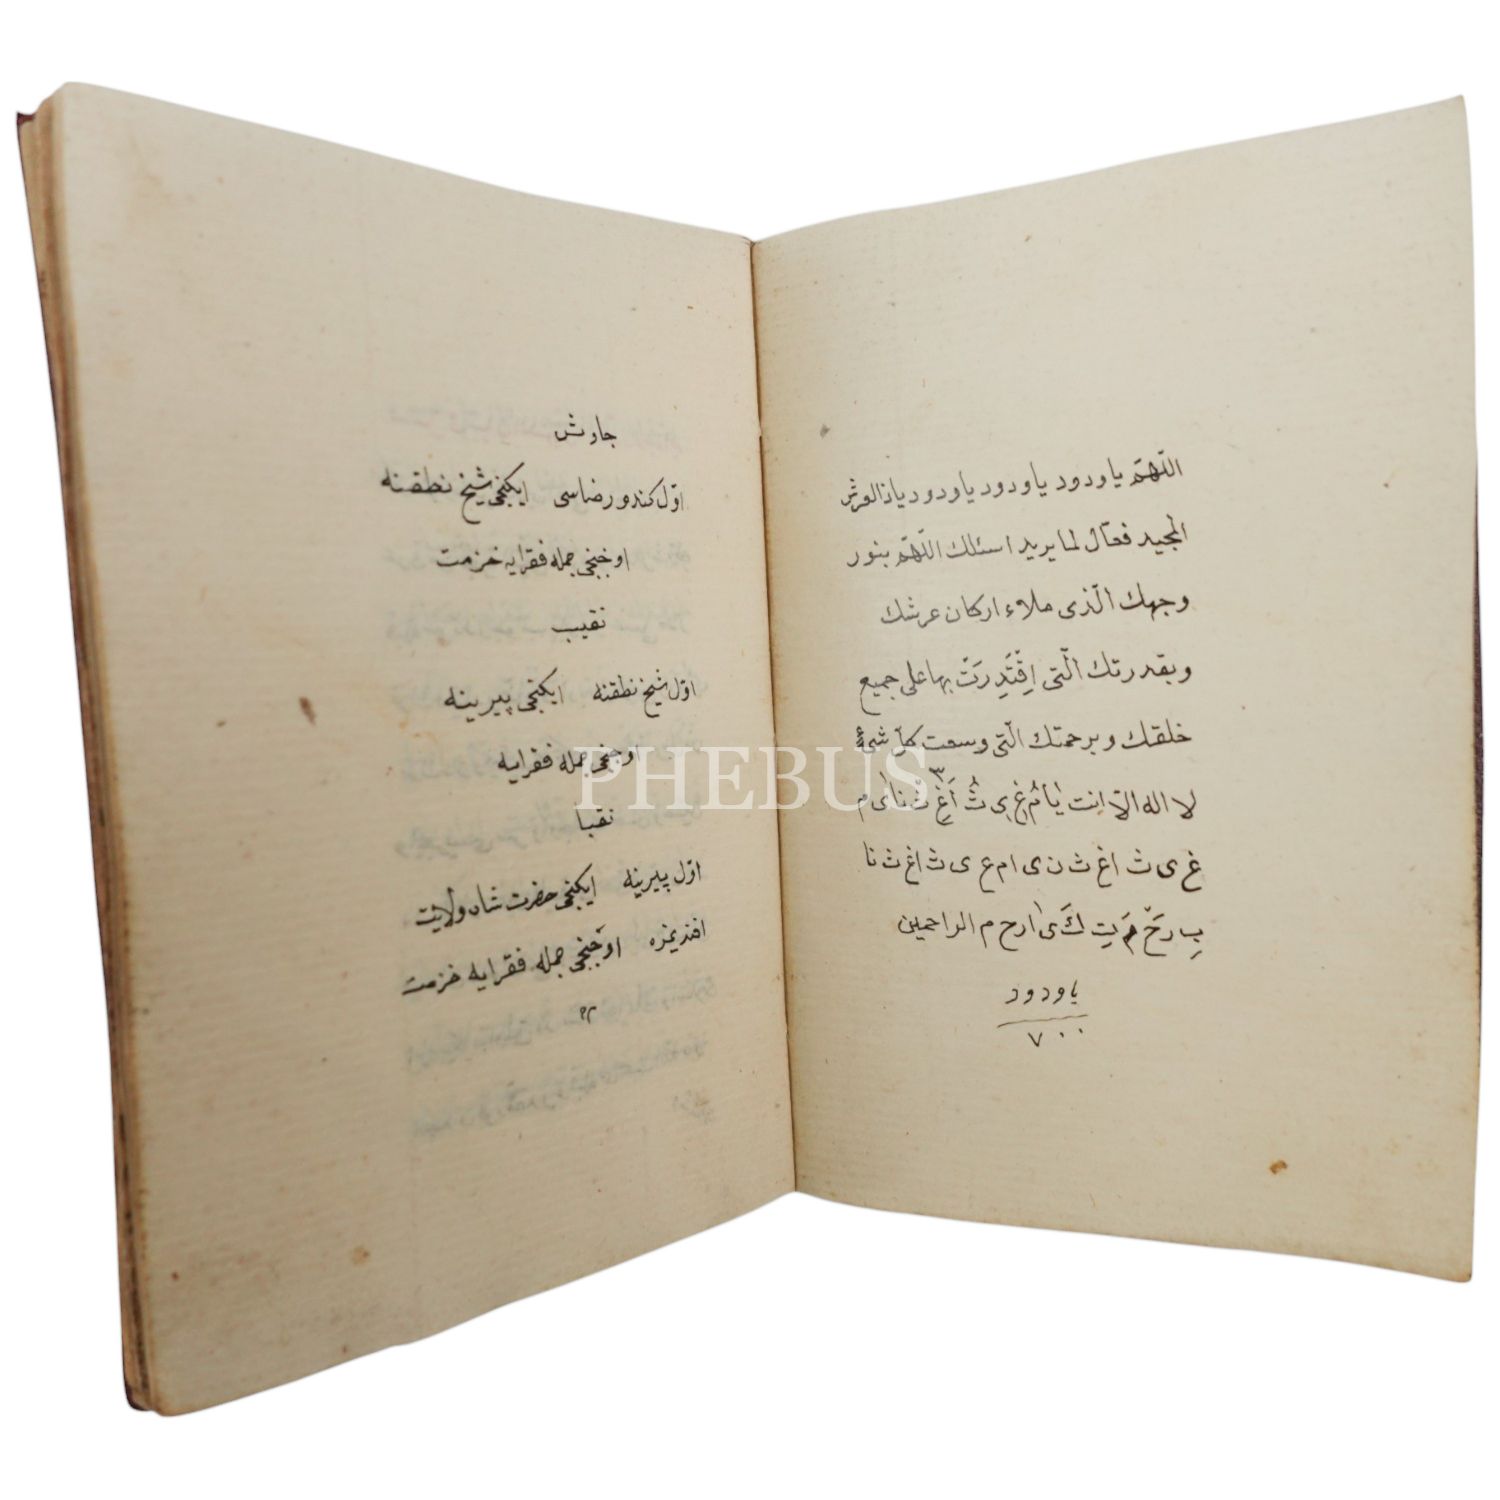 اللّهمّ ياودود ياودود ياودود ياذالعرش
المجيد فعّال لما يريد اسئلك اللّهمّ بنور
وجهك الّذى ملاء اركان عرشك
وبقدرتك الّتى اِقْتَدِرَتْ بها على جميع
خلقك وبرحمتك الّتى وسعت كلّ شىء
لا اله الّا انت
غ ى ث اغ ث ن ى ام غ ى ث اغ ث نا
بِ رَحْ مَ تِ كَ ى ارح م الراحمين
ياودود
٧٠٠
جاوش
اوّل كندو رضاسى ايكنجى شيخ نطقنه
اوچنجى جمله فقرايه خزمت
نقيب
اوّل شيخ نطقنه ايكنجى پيرينه
اوچنجى جمله فقرايه
نقبا
اوّل پيرينه ايكنجى حضرت شاه ولايت
افنديمزه اوچنجى جمله فقرايه خزمت
PHEBUS